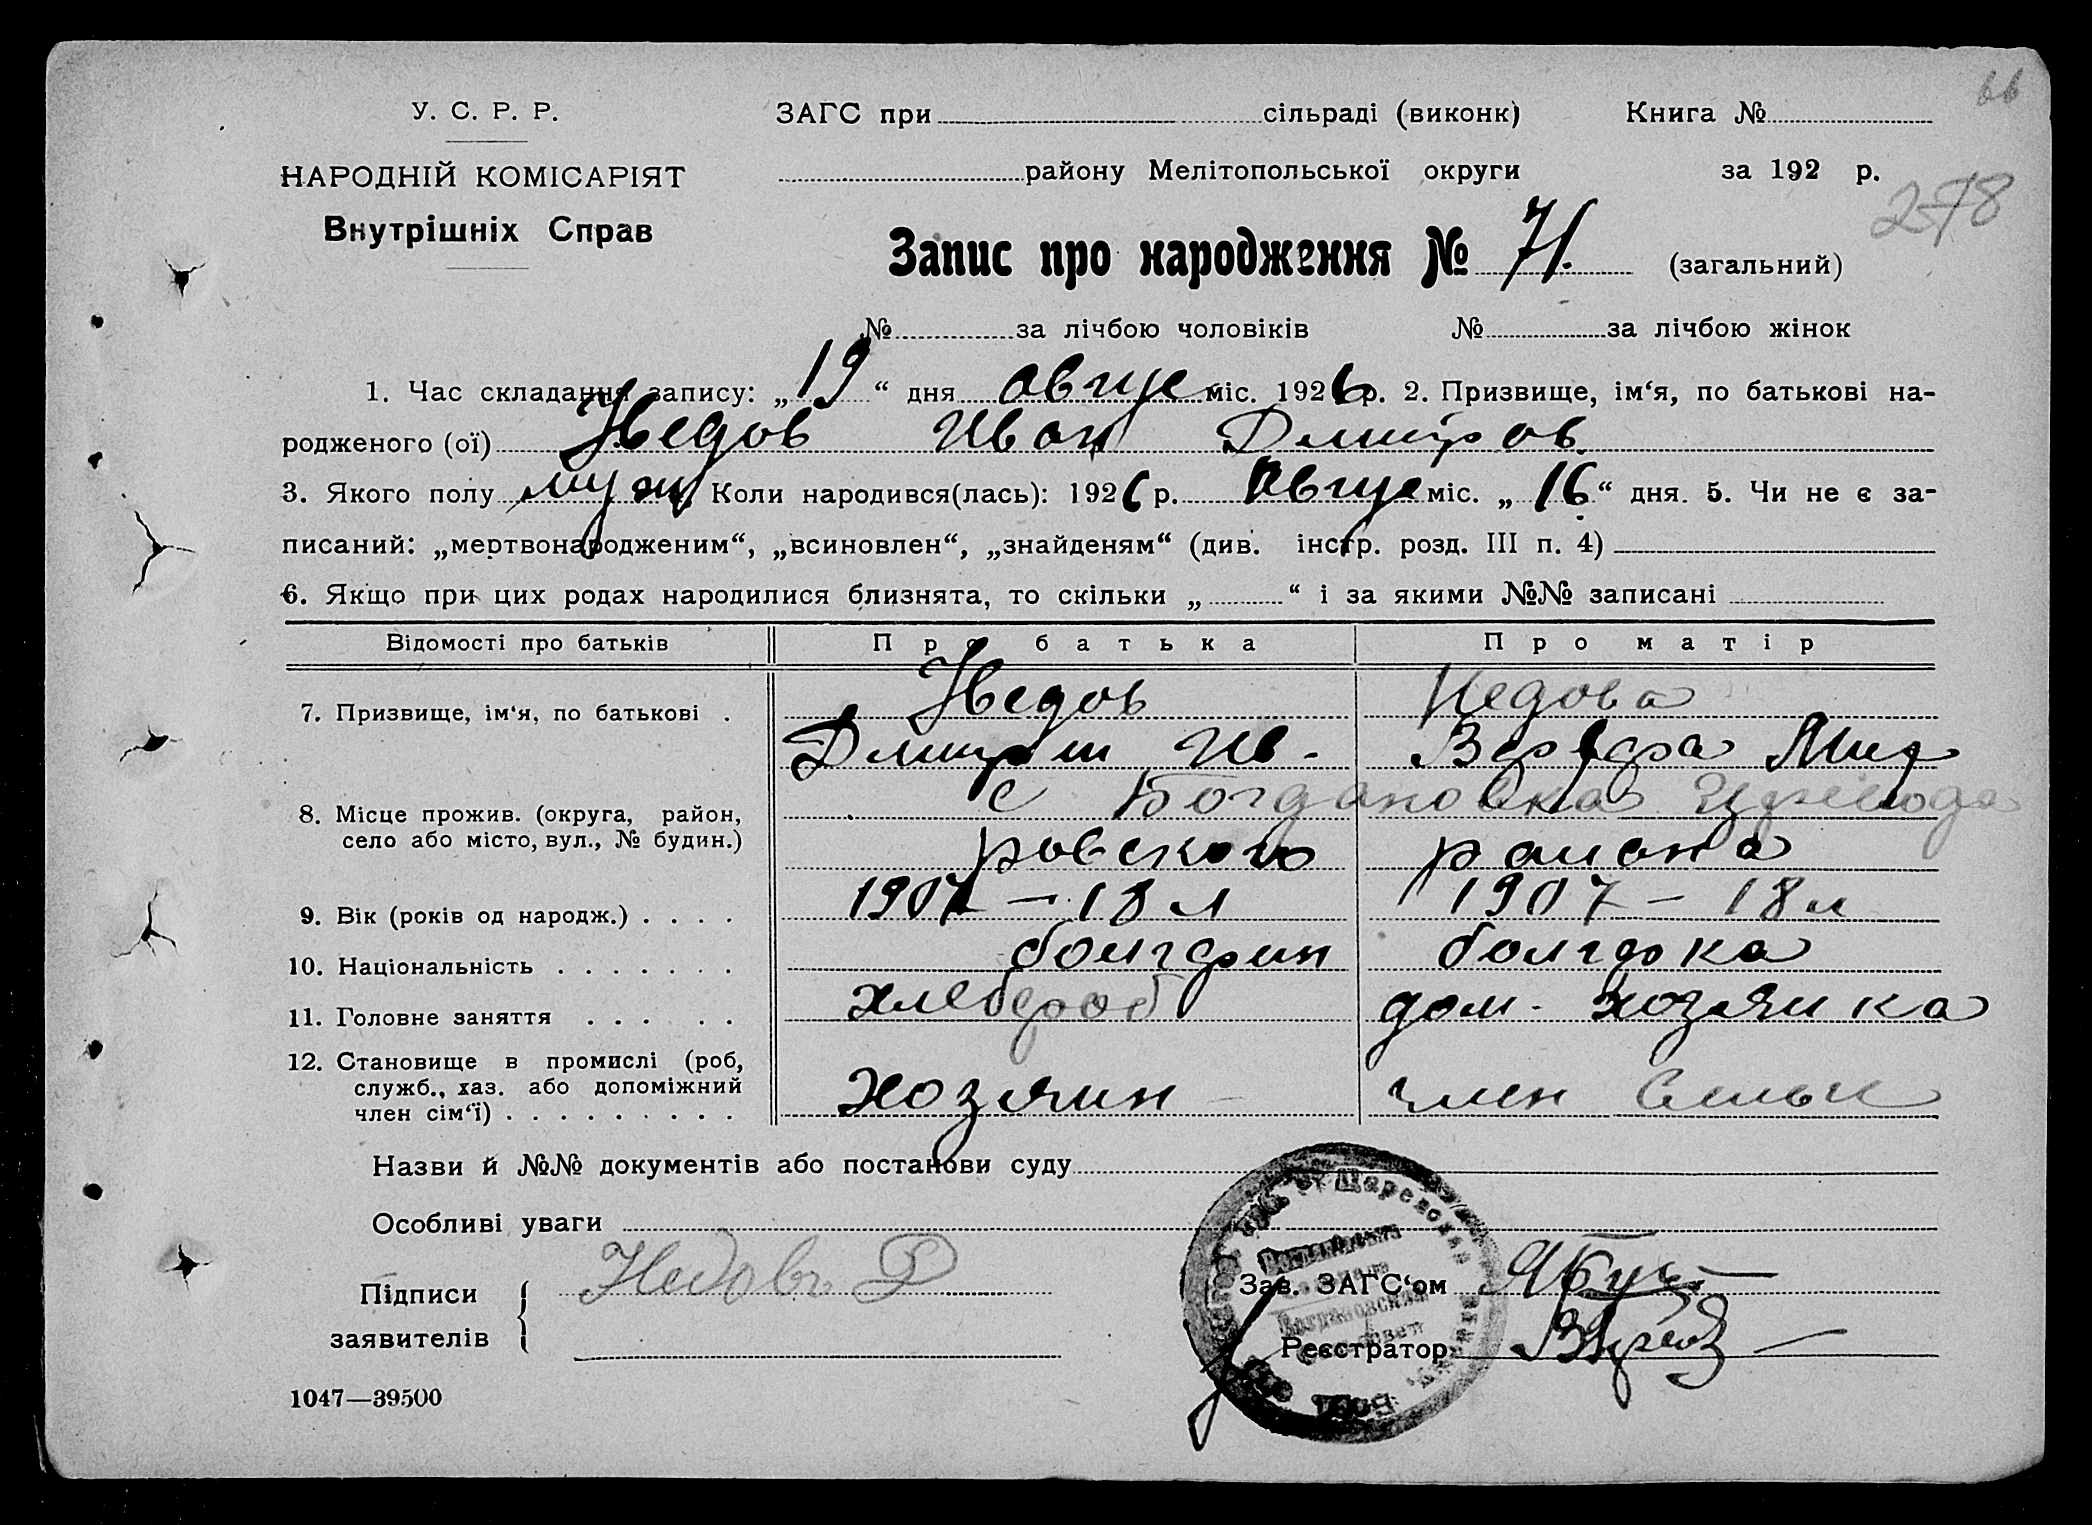 66
У. С. Р. Р.
ЗАГС при сільраді (виконк) Книга №
НАРОДНІЙ КОМІСАРІЯТ
району Мелітопольської округи за 192 р.
Внутрішніх Справ
278
Запис про народження № 71. (загальний)
№ за лічбою чоловіків № за лічбою жінок
1. Час складання запису: „19“ дня авгус міс. 1926 р. 2. Призвище, ім‘я, по батькові на-
родженого (ої) Недов Иван Дмитров
3. Якого полу муж Коли народився(лась): 1926 р. Авгус міс. „16“ дня. 5. Чи не є за-
писаний: „мертвонародженим“, „всиновлен“, „знайденям“ (див. інстр. розд. III п. 4)
6. Якщо при цих родах народилися близнята, то скільки „ “ і за якими №№ записані
Відомості про батьків Про батька Про матір
7. Призвище, ім‘я, по батькові . Недов Недова
Дмитрий Ив. Варвара
8. Місце прожив. (округа, район, с Богдановка
село або місто, вул., № будин.) ровского района
9. Вік (років од народж.) . . . . 1907 – 18 л 1907 – 18 л
10. Національність . . . . . . . болгарин болгарка
11. Головне заняття . . . . . хлебороб дом. хозяйка
12. Становище в промислі (роб, служб., хаз. або допоміжний член сім‘ї) . . . . . . . . . хозяин член семьи
Назви й №№ документів або постанови суду
Особливі уваги
Підписи заявителів { Недовъ
Зав. ЗАГС‘ом
Реєстратор
1047—39500